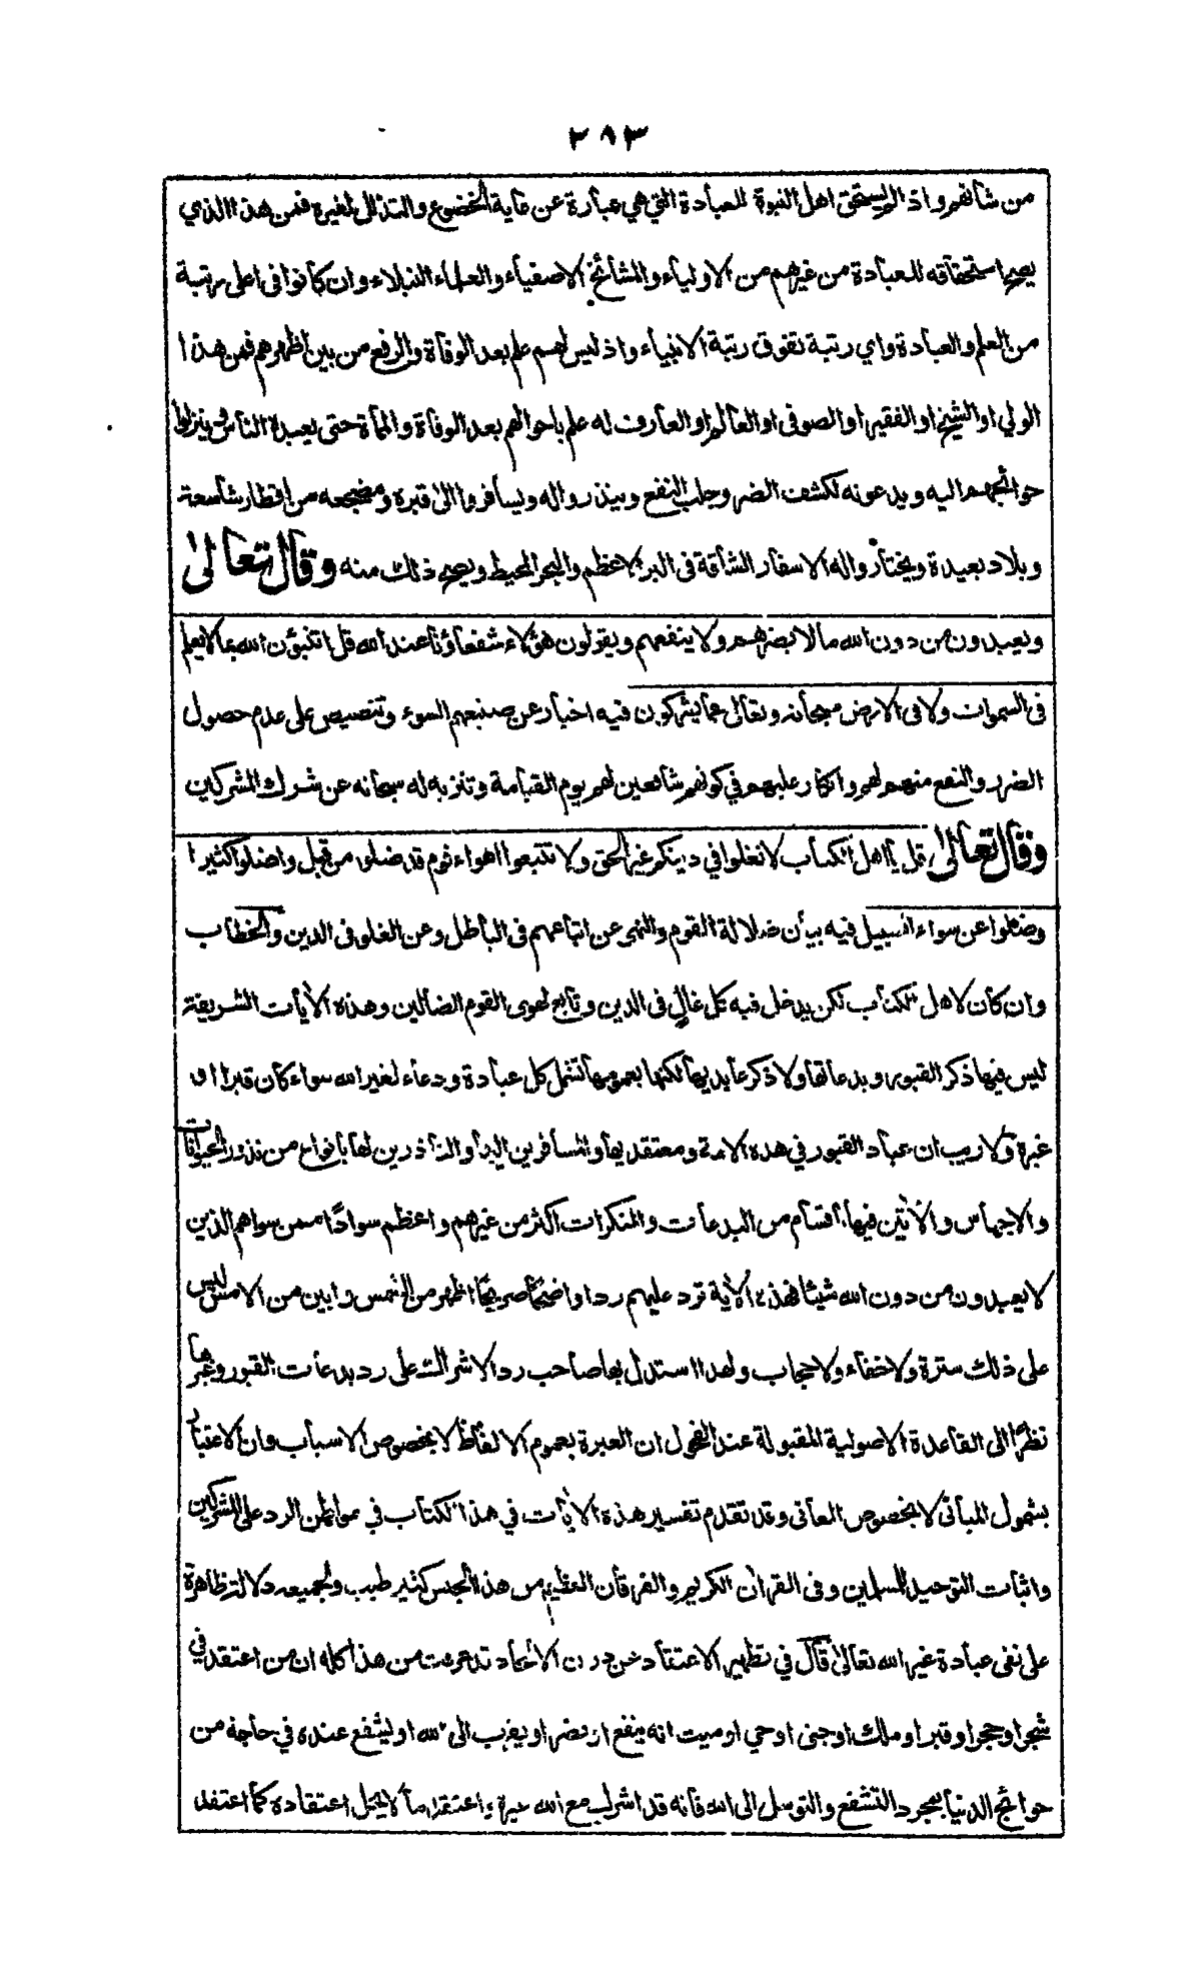 ٢٨٣
من شأنهم واذ لم يستحق اهل النبوة للعبادة التي هي عبارة عن غاية الخضوع والتذلل لغيره فمن هذا الذي
يصح استحقاقه للعبادة من غيرهم من الاولياء والمشائخ الاصفياء والعلماء النبلاء وان كانوا فى اعلى مرتبة
من العلم والعبادة واي رتبة تفوق رتبة الانبياء واذ ليس لهم علم بعد الوفاة والرفع من بين اظهرهم فمن هذا
الولي او الشيخ او الفقير او الصوفى او العالم او العارف له علم باحوالهم بعد الوفاة والمماة حتى يعبده الناس وينزلوا
حوائجهم اليه ويدعونه لكشف الضر وجلب النفع وينذروا له ويسافروا الى قبره ومضجعه من اقطار شاسعة
وبلاد بعيدة ويختاروا له الاسفار الشاقة فى البر الاعظم والبحر المحيط ويصح ذلك منه وقال تعالى
ويعبدون من دون الله ما لا يضرهم ولا ينفعهم ويقولون هؤلاء شفعاؤنا عند الله قل اتنبؤن الله بما لا يعلم
فى السموات ولا فى الارض سبحانه وتعالى عما يشركون فيه اخبار عن صنيعهم السوء وتنصيص على عدم حصول
الضرر والنفع منهم لهم وانكار عليهم في كونهم شافعين لهم يوم القيامة وتنزيه له سبحانه عن شرك المشركين
وقال تعالى قل يا اهل الكتاب لا تغلوا في دينكم غير الحق ولا تتبعوا اهواء قوم قد ضلوا من قبل واضلوا كثيرا
وضلوا عن سواء السبيل فيه بيان ضلالة القوم والنهى عن اتباعهم فى الباطل وعن الغلو فى الدين والخطاب
وان كان لاهل الكتاب لكن يدخل فيه كل غالٍ فى الدين وتابع لهوى القوم الضالين وهذه الأيات الشريفة
ليس فيها ذكر القبور وبدعاتها ولا ذكر عابديها لكنها بعمومها تشمل كل عبادة ودعاء لغير الله سواء كان قبرا او
غيره ولا ريب ان عباد القبور في هذه الامة ومعتقديها والمسافرين اليها والناذرين لها بانواع من نذور الحيوانات
والاجناس والأتين فيها باقسام من البدعات والمنكرات اكثر من غيرهم واعظم سوادًا ممن سواهم الذين
لا يعبدون من دون الله شيئا فهذه الأية ترد عليهم ردا واضحًا صريحًا اظهر من الشمس وابين من الامس ليس
على ذلك سترة ولا خفاء ولا حجاب ولهذا استدل بها صاحب رد الاشراك على رد بدعات القبور وغيرها
نظرا الى القاعدة الاصولية المقبولة عند الفحول ان العبرة بعموم الالفاظ لا بخصوص الاسباب وان الاعتبار
بشمول المبانى لا بخصوص المعانى وقد تقدم تفسير هذه الأيات في هذا الكتاب في مواطن الرد على المشركين
واثبات التوحيد للمسلمين وفى القرأن الكريم والفرقان العظيم من هذا الجنس كثير طيب ولجميعه دلالة ظاهرة
على نفى عبادة غير الله تعالى قال في تطهير الاعتقاد عن درن الالحاد قد عرفت من هذا كله ان من اعتقد في
شجر او حجر او قبر او ملك او جنى او حي او ميت انه ينفع او يضر او يقرب الى الله او يشفع عنده في حاجة من
حوائج الدنيا بمجرد التشفع والتوسل الى الله فانه قد اشرك مع الله غيره واعتقد ما لا يحل اعتقاده كما اعتقد